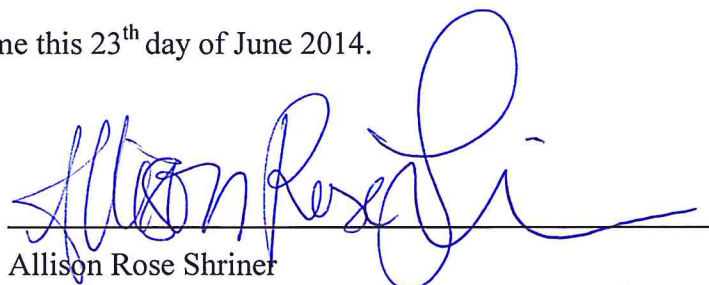 me this 23th day of June 2014.
Allison Rose
Allison Rose Shriner